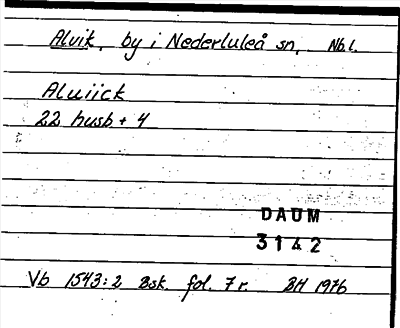 Alvik, by i Nederluleå sn, Nb.l.
Aluiick
22 husb + 4
DAUM
3142
Vb 1543:2 Bsk. fol. 7 r. BH 1976